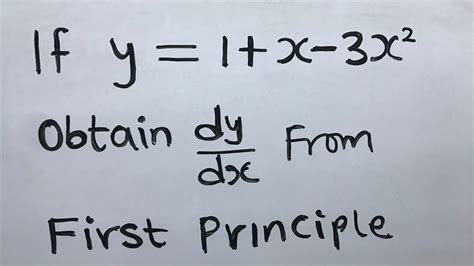 If y = 1 + x - 3x²
Obtain dy/dx From
First Principle